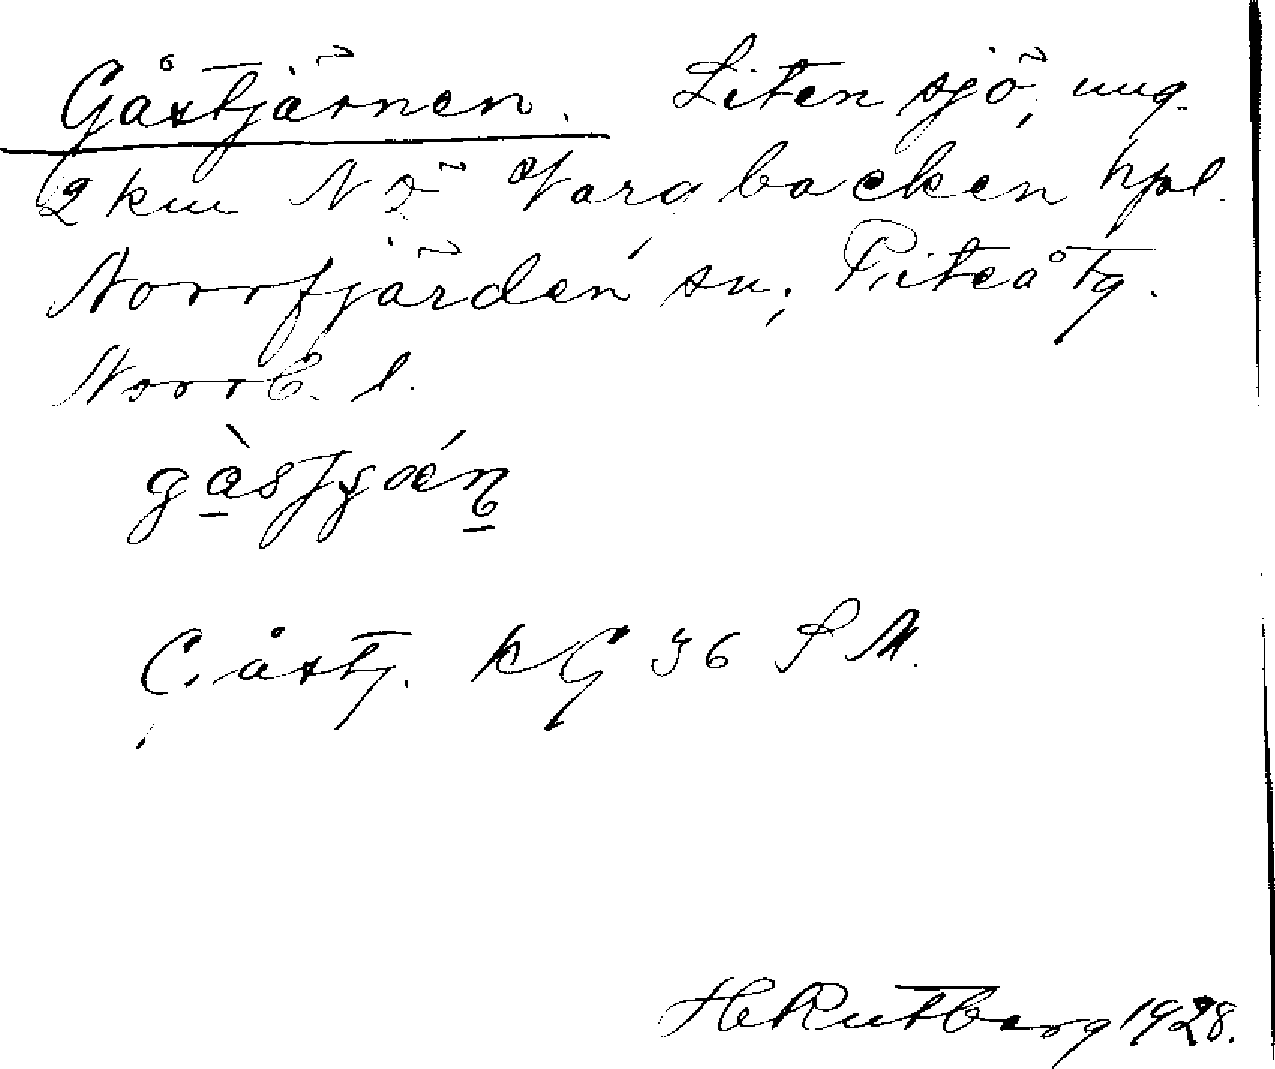 Gåstjärnen. Liten sjö, ung.
2 km NÖ Vargbacken hpl.
Norrfjärden sn, Piteå tg.
Norrb. l.
Gåstj. KG 36 S M.
H Rutberg 1928.